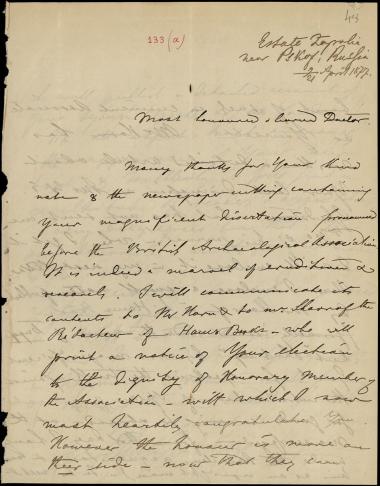 43
133 (a)
Estate
near Pskof, Russia
April 1877.
Most honoured & learned Doctor
Many thanks for Your kind
note & the newspaper cutting containing
Your magnificent Dissertation pronounced
before the British Archaeological Association
It is indeed a marvel of erudition &
research. I will communicate its
contents to Mr Horn & to Mr
the of – who will
print a notice of Your election
to the Dignity of Honorary Member of
the Association – with which I now
most heartily congratulate You.
However the honour is more on
their side – now that they can